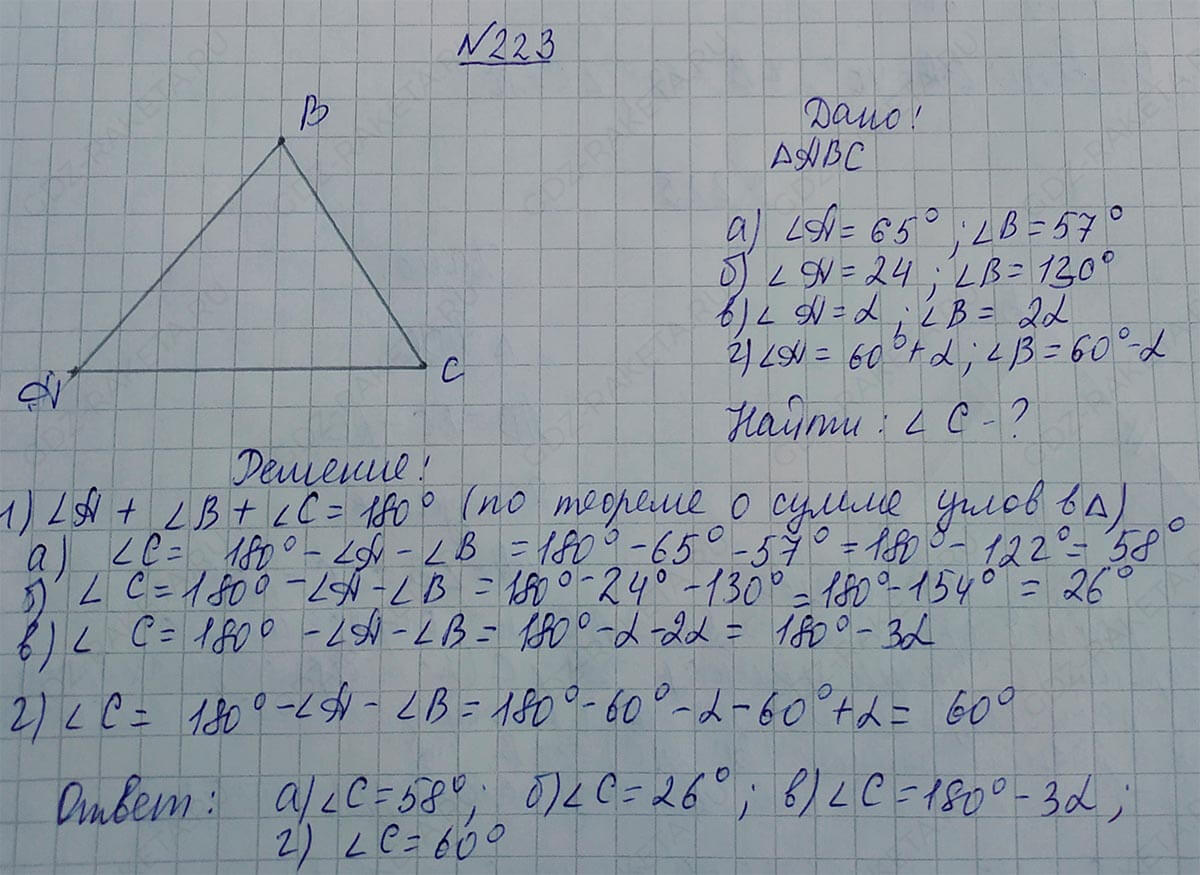 N223
B
A
C
Дано!
△ABC
а) ∠A = 65° ; ∠B = 57°
б) ∠A = 24 ; ∠B = 130°
в) ∠A = α ; ∠B = 2α
г) ∠A = 60° + α ; ∠B = 60° - α
Найти : ∠ C - ?
Решение!
1) ∠A + ∠B + ∠C = 180° (по теореме о сумме углов в △)
а) ∠C = 180° - ∠A - ∠B = 180° - 65° - 57° = 180° - 122° = 58°
б) ∠ C = 180° - ∠A - ∠B = 180° - 24° - 130° = 180° - 154° = 26°
в) ∠ C = 180° - ∠A - ∠B = 180° - α - 2α = 180° - 3α
г) ∠C = 180° - ∠A - ∠B = 180° - 60° - α - 60° + α = 60°
Ответ : а) ∠C = 58° ; б) ∠C = 26° ; в) ∠C = 180° - 3α ;
г) ∠C = 60°
GDZ-RAKETA.RU